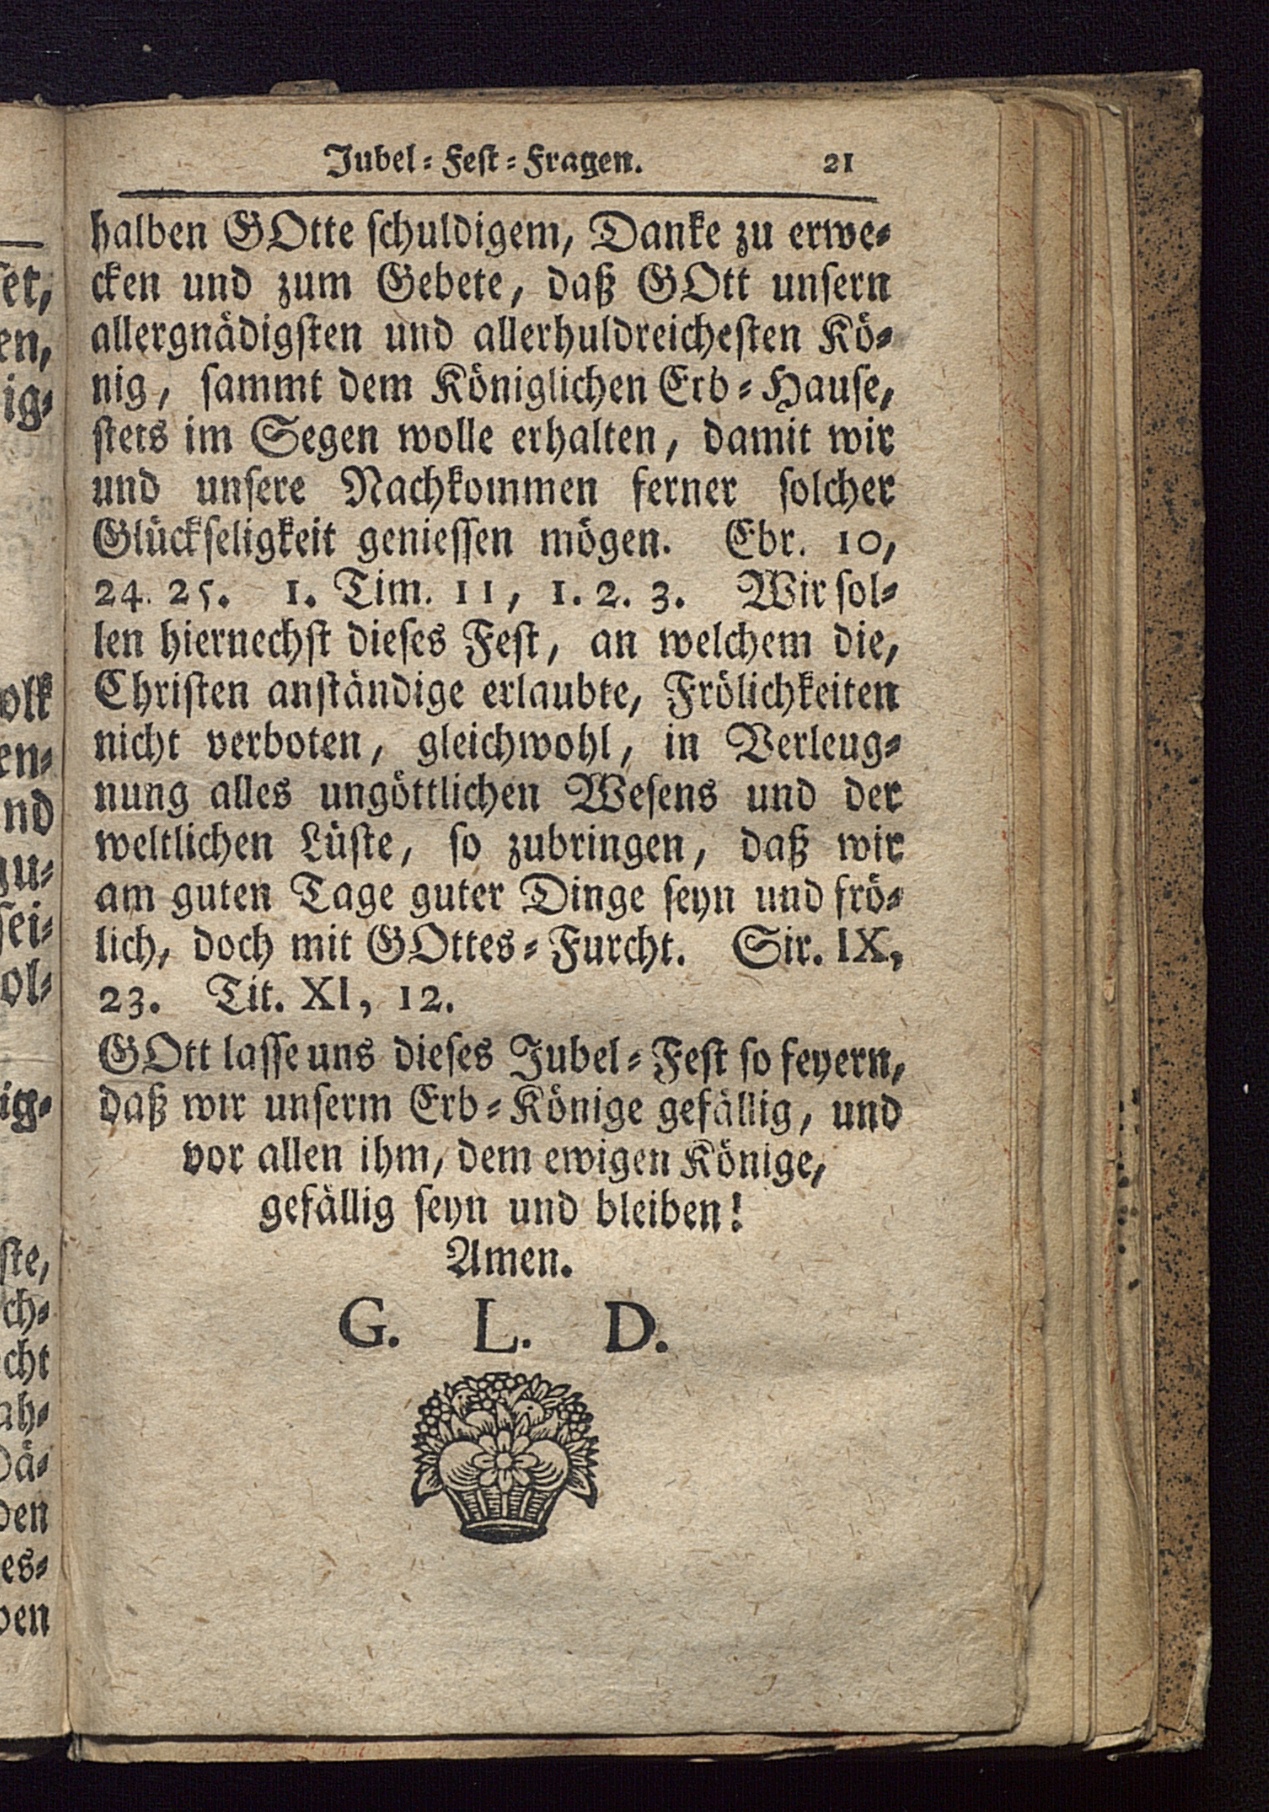 Jubel-Fest-Fragen. 21
halben GOtte schuldigem, Danke zu erwe-
cken und zum Gebete, daß GOtt unsern
allergnädigsten und allerhuldreichesten Kö-
nig, sammt dem Königlichen Erb-Hause,
stets im Segen wolle erhalten, damit wir
und unsere Nachkommen ferner solcher
Glückseligkeit geniessen mögen. Ebr. 10,
24. 25. 1. Tim. 11, 1. 2. 3. Wir sol-
len hiernechst dieses Fest, an welchem die,
Christen anständige erlaubte, Frölichkeiten
nicht verboten, gleichwohl, in Verleug-
nung alles ungöttlichen Wesens und der
weltlichen Lüste, so zubringen, daß wir
am guten Tage guter Dinge seyn und frö-
lich, doch mit GOttes-Furcht. Sir. IX,
23. Tit. XI, 12.
GOtt lasse uns dieses Jubel-Fest so feyern,
daß wir unserm Erb-Könige gefällig, und
vor allen ihm, dem ewigen Könige,
gefällig seyn und bleiben!
Amen.
G. L. D.